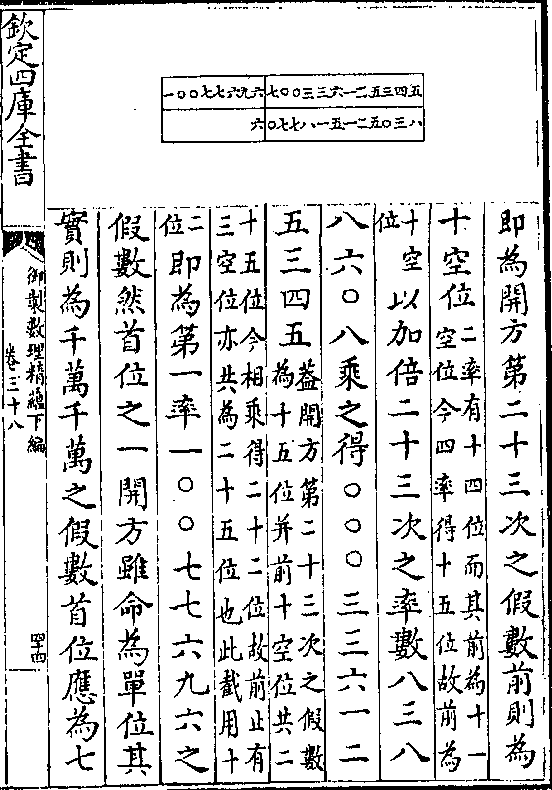 一〇〇七七六九六七〇〇三三六一二五三四五
六〇七七八一五一二五〇三八
即為開方第二十三次之假數前則為
十空位二率有十四位而其前為十一
空位今四率得十五位故前為
十空
位以加倍二十三次之率數八三八
八六〇八乘之得〇〇〇三三六一二
五三四五葢開方第二十三次之假數
為十五位并前十空位共二
十五位今相乘得二十二位故前止有
三空位亦共為二十五位也此截用十
二
位即為第一率一〇〇七七六九六之
假數然首位之一開方雖命為單位其
實則為千萬千萬之假數首位應為七
欽定四庫全書
御製數理精蘊下編
卷三十八
四十四